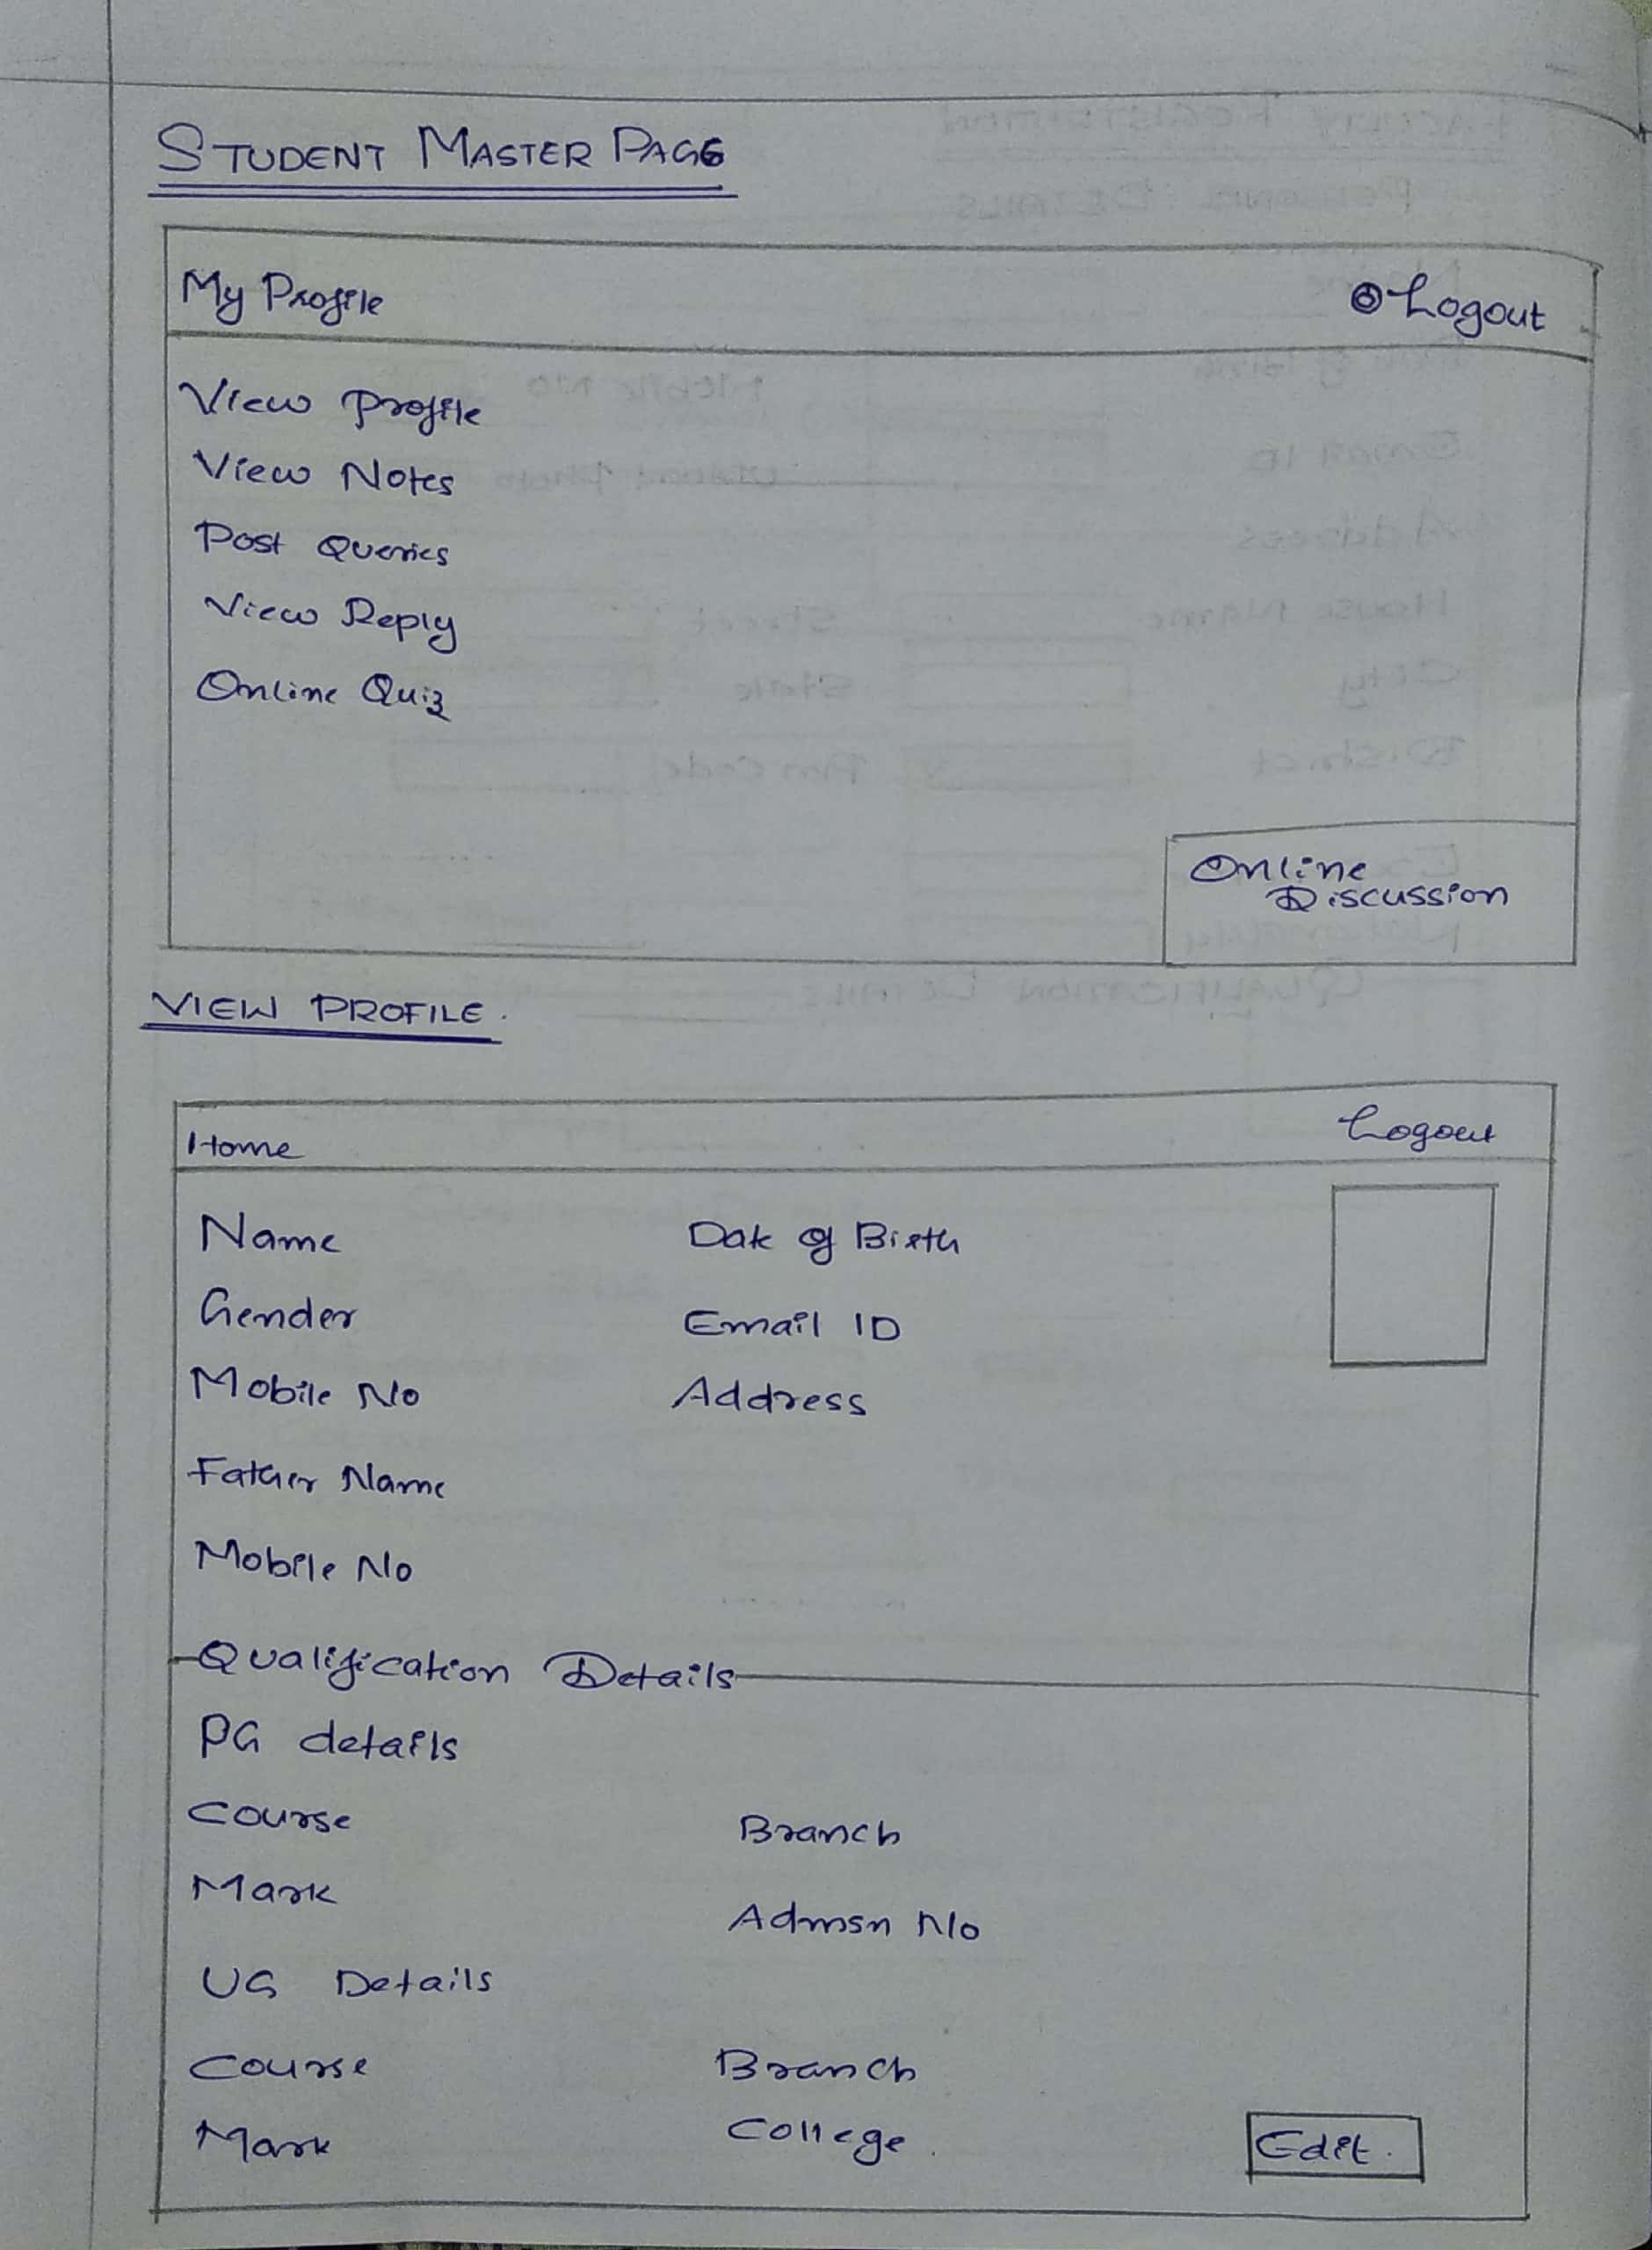 STUDENT MASTER PAGE
My Profile Logout
View Profile
View Notes
Post Queries
View Reply
Online Quiz
Online
Discussion
VIEW PROFILE.
Home Logout
Name Date of Birth
Gender Email ID
Mobile No Address
Father Name
Mobile No
Qualification Details
PG details
Course Branch
Mark Admsn No
UG Details
Course Branch
Mark College.
Edit.